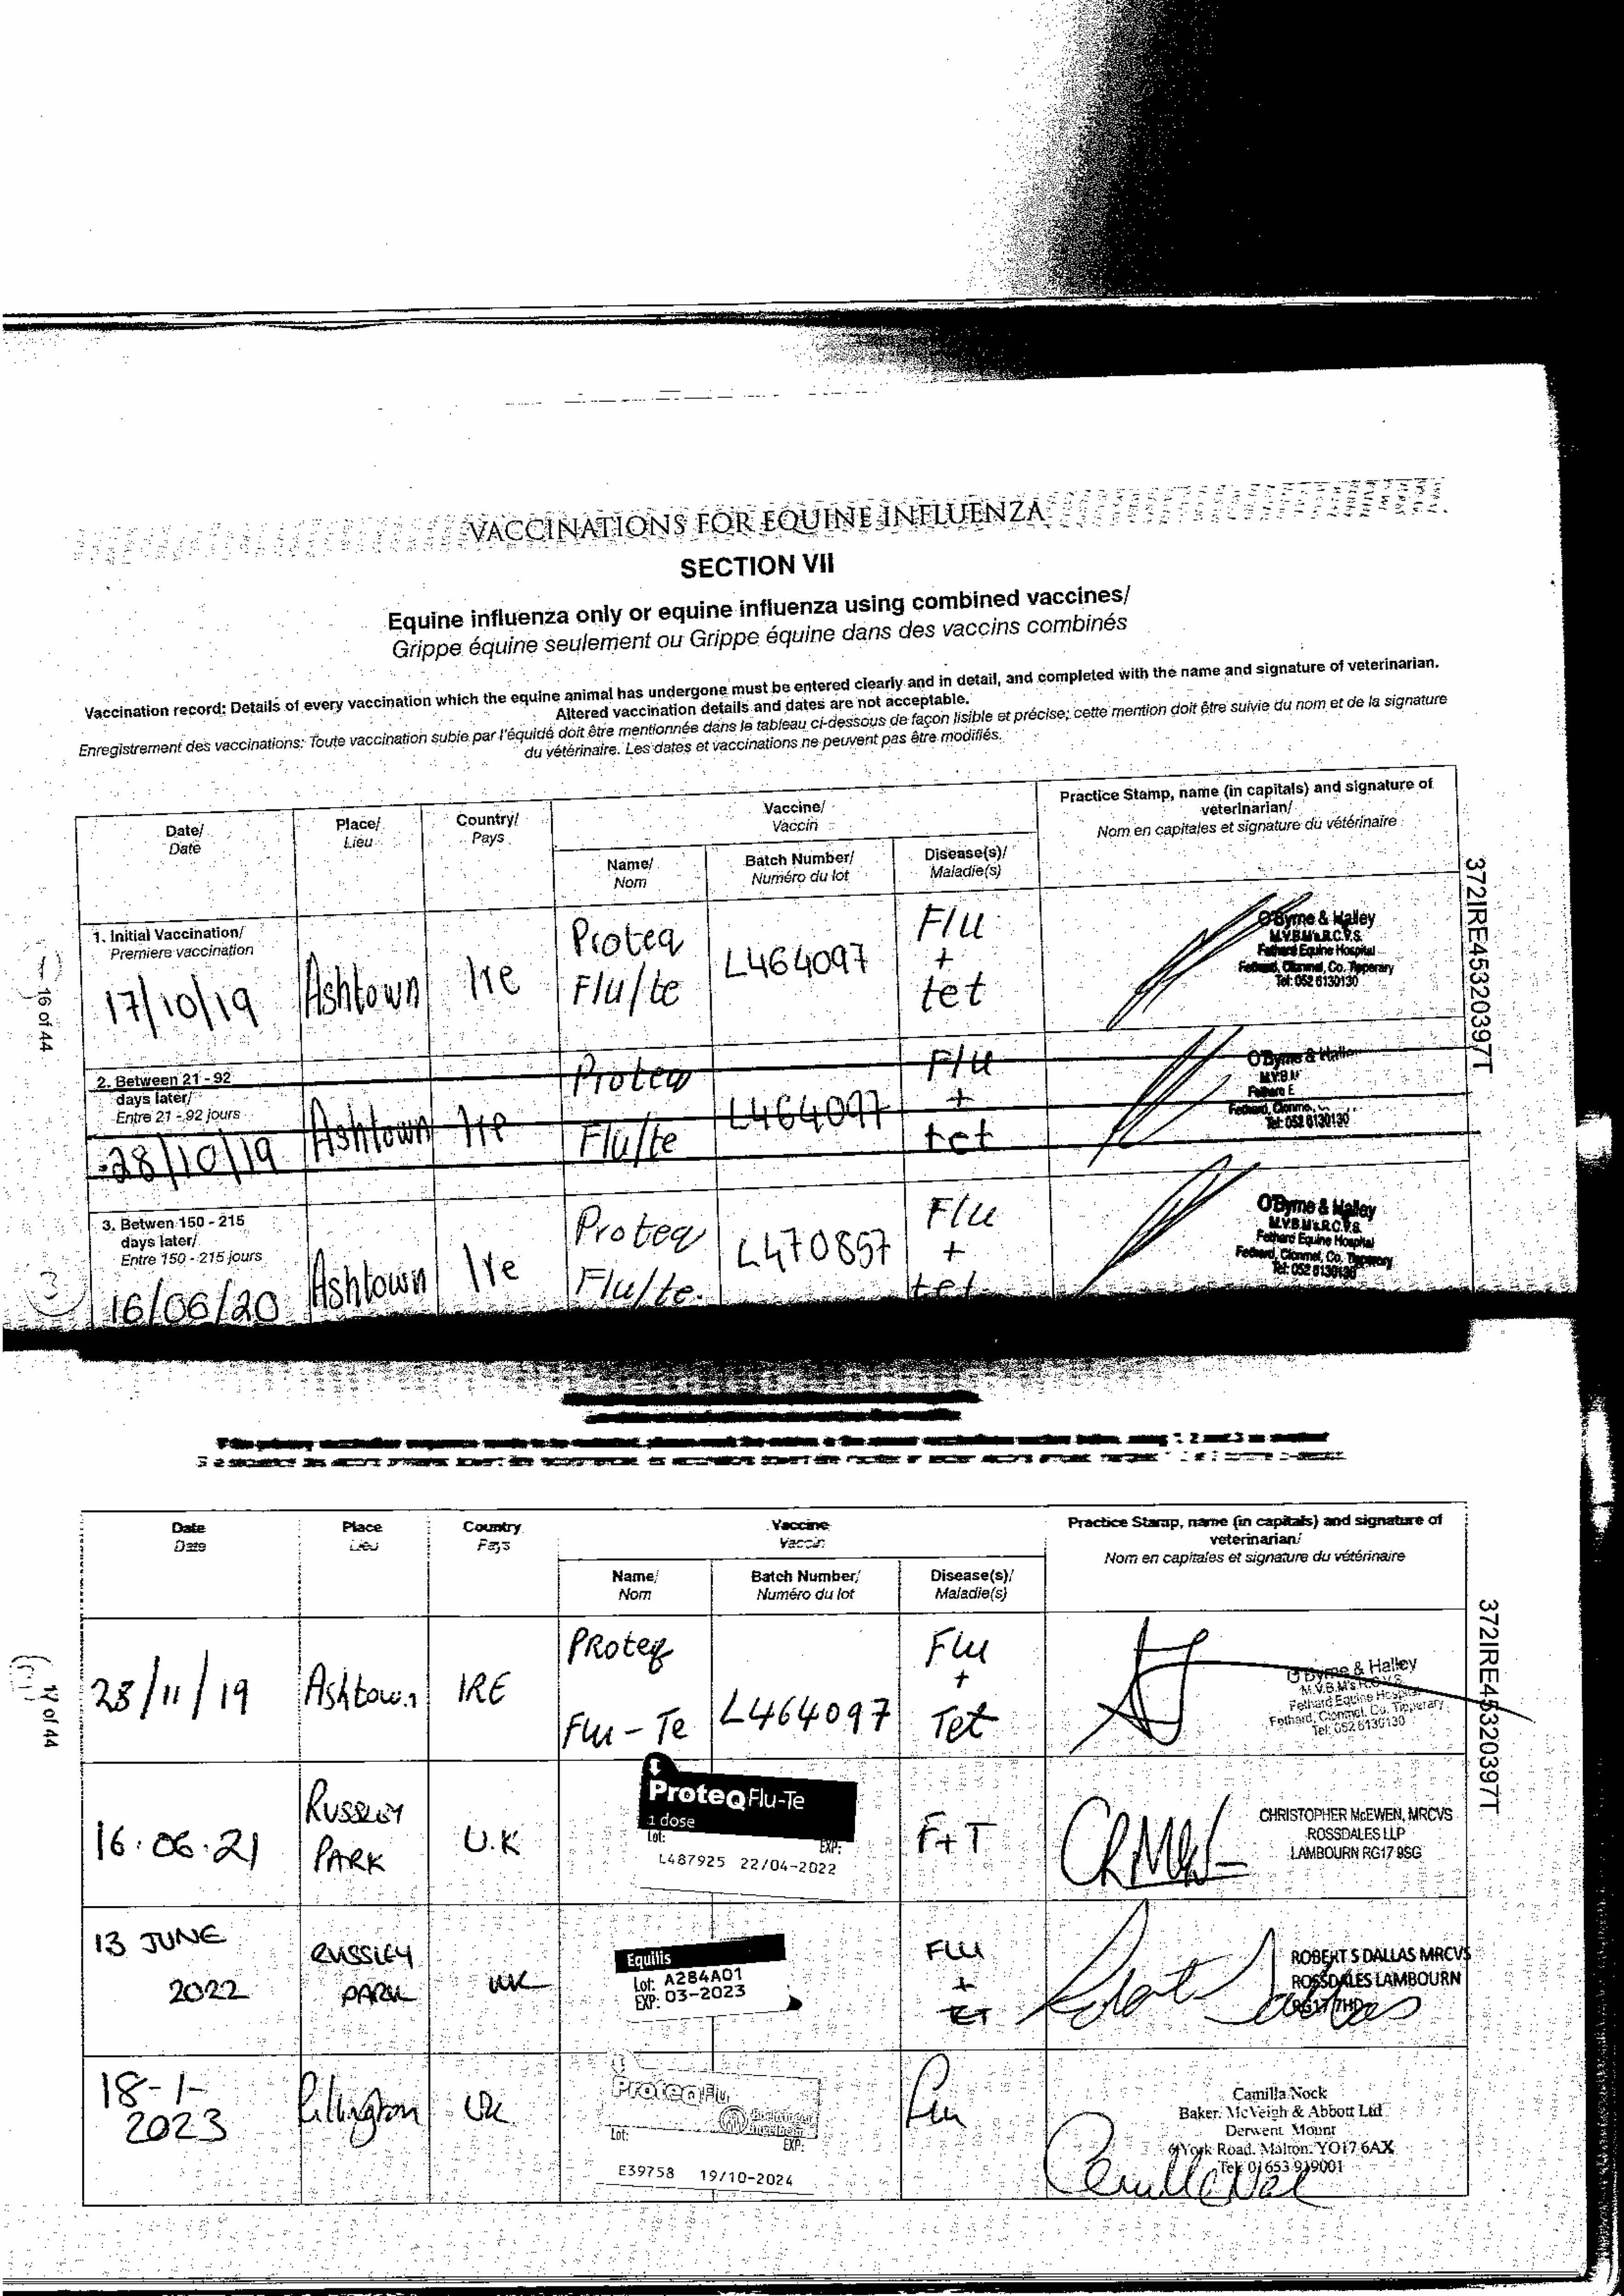 VACCINATIONS FOR EQUINE INFLUENZA
SECTION VII
Equine influenza only or equine influenza using combined vaccines/
Grippe équine seulement ou Grippe équine dans des vaccins combinés
Vaccination record: Details of every vaccination which the equine animal has undergone must be entered clearly and in detail, and completed with the name and signature of veterinarian.
Altered vaccination details and dates are not acceptable.
Enregistrement des vaccinations: Toute vaccination subie par l'équidé doit être mentionnée dans le tableau ci-dessous de façon lisible et précise; cette mention doit être suivie du nom et de la signature
du vétérinaire. Les dates et vaccinations ne peuvent pas être modifiés.
Date/
Date
Place/
Lieu
Country/
Pays
Vaccine/
Vaccin
Name/
Nom
Batch Number/
Numéro du lot
Disease(s)/
Maladie(s)
Practice Stamp, name (in capitals) and signature of
veterinarian/
Nom en capitales et signature du vétérinaire
372IRE45320397T
16 of 44
1. Initial Vaccination/
Premiere vaccination
17/10/19
Ashtown
Ire
Proteq
Flu/te
L464097
Flu
+
tet
O'Byrne & Halley
M.V.B.M's R.C.V.S.
Fethard Equine Hospital
Fethard, Clonmel, Co. Tipperary
Tel: 052 6130130
2. Between 21 - 92
days later/
Entre 21 - 92 jours
28/10/19
Ashtown
Ire
Proteq
Flu/te
L464097
Flu
+
tet
O'Byrne & Halley
M.V.B.M
Fethard E
Fethard, Clonmel,
Tel: 052 6130130
3. Betwen 150 - 215
days later/
Entre 150 - 215 jours
16/06/20
Ashtown
Ire
Proteq
Flu/te.
L470857
Flu
+
tet
O'Byrne & Halley
M.V.B.M's R.C.V.S.
Fethard Equine Hospital
Fethard, Clonmel, Co. Tipperary
Tel: 052 6130130
3
Date
Date
Place
Lieu
Country
Pays
Vaccine
Vaccin
Name/
Nom
Batch Number/
Numéro du lot
Disease(s)/
Maladie(s)
Practice Stamp, name (in capitals) and signature of
veterinarian/
Nom en capitales et signature du vétérinaire
372IRE45320397T
17 of 44
28/11/19
Ashtown
IRE
PRoteq
Flu-Te
L464097
Flu
+
Tet
O'Byrne & Halley
M.V.B.M's R.C.V.S.
Fethard Equine Hospital
Fethard, Clonmel, Co. Tipperary
Tel: 052 6130130
16.06.21
RUSSLEY
PARK
U.K
ProteqFlu-Te
1 dose
Lot:
EXP:
L487925 22/04-2022
F+T
CHRISTOPHER McEWEN, MRCVS
ROSSDALES LLP
LAMBOURN RG17 8SG
13 JUNE
2022
RUSSLEY
PARK
UK
Equilis
Lot: A284A01
EXP: 03-2023
FLU
+
ROBERT S DALLAS MRCVS
ROSSDALES LAMBOURN
RG17 7HD
18-1-
2023
Rillington
UK
ProteqFlu
Lot:
EXP:
E39758 19/10-2024
Flu
Camilla Nock
Baker, McVeigh & Abbott Ltd
Derwent Mount
York Road, Malton, YO17 6AX
Tel: 01653 919001